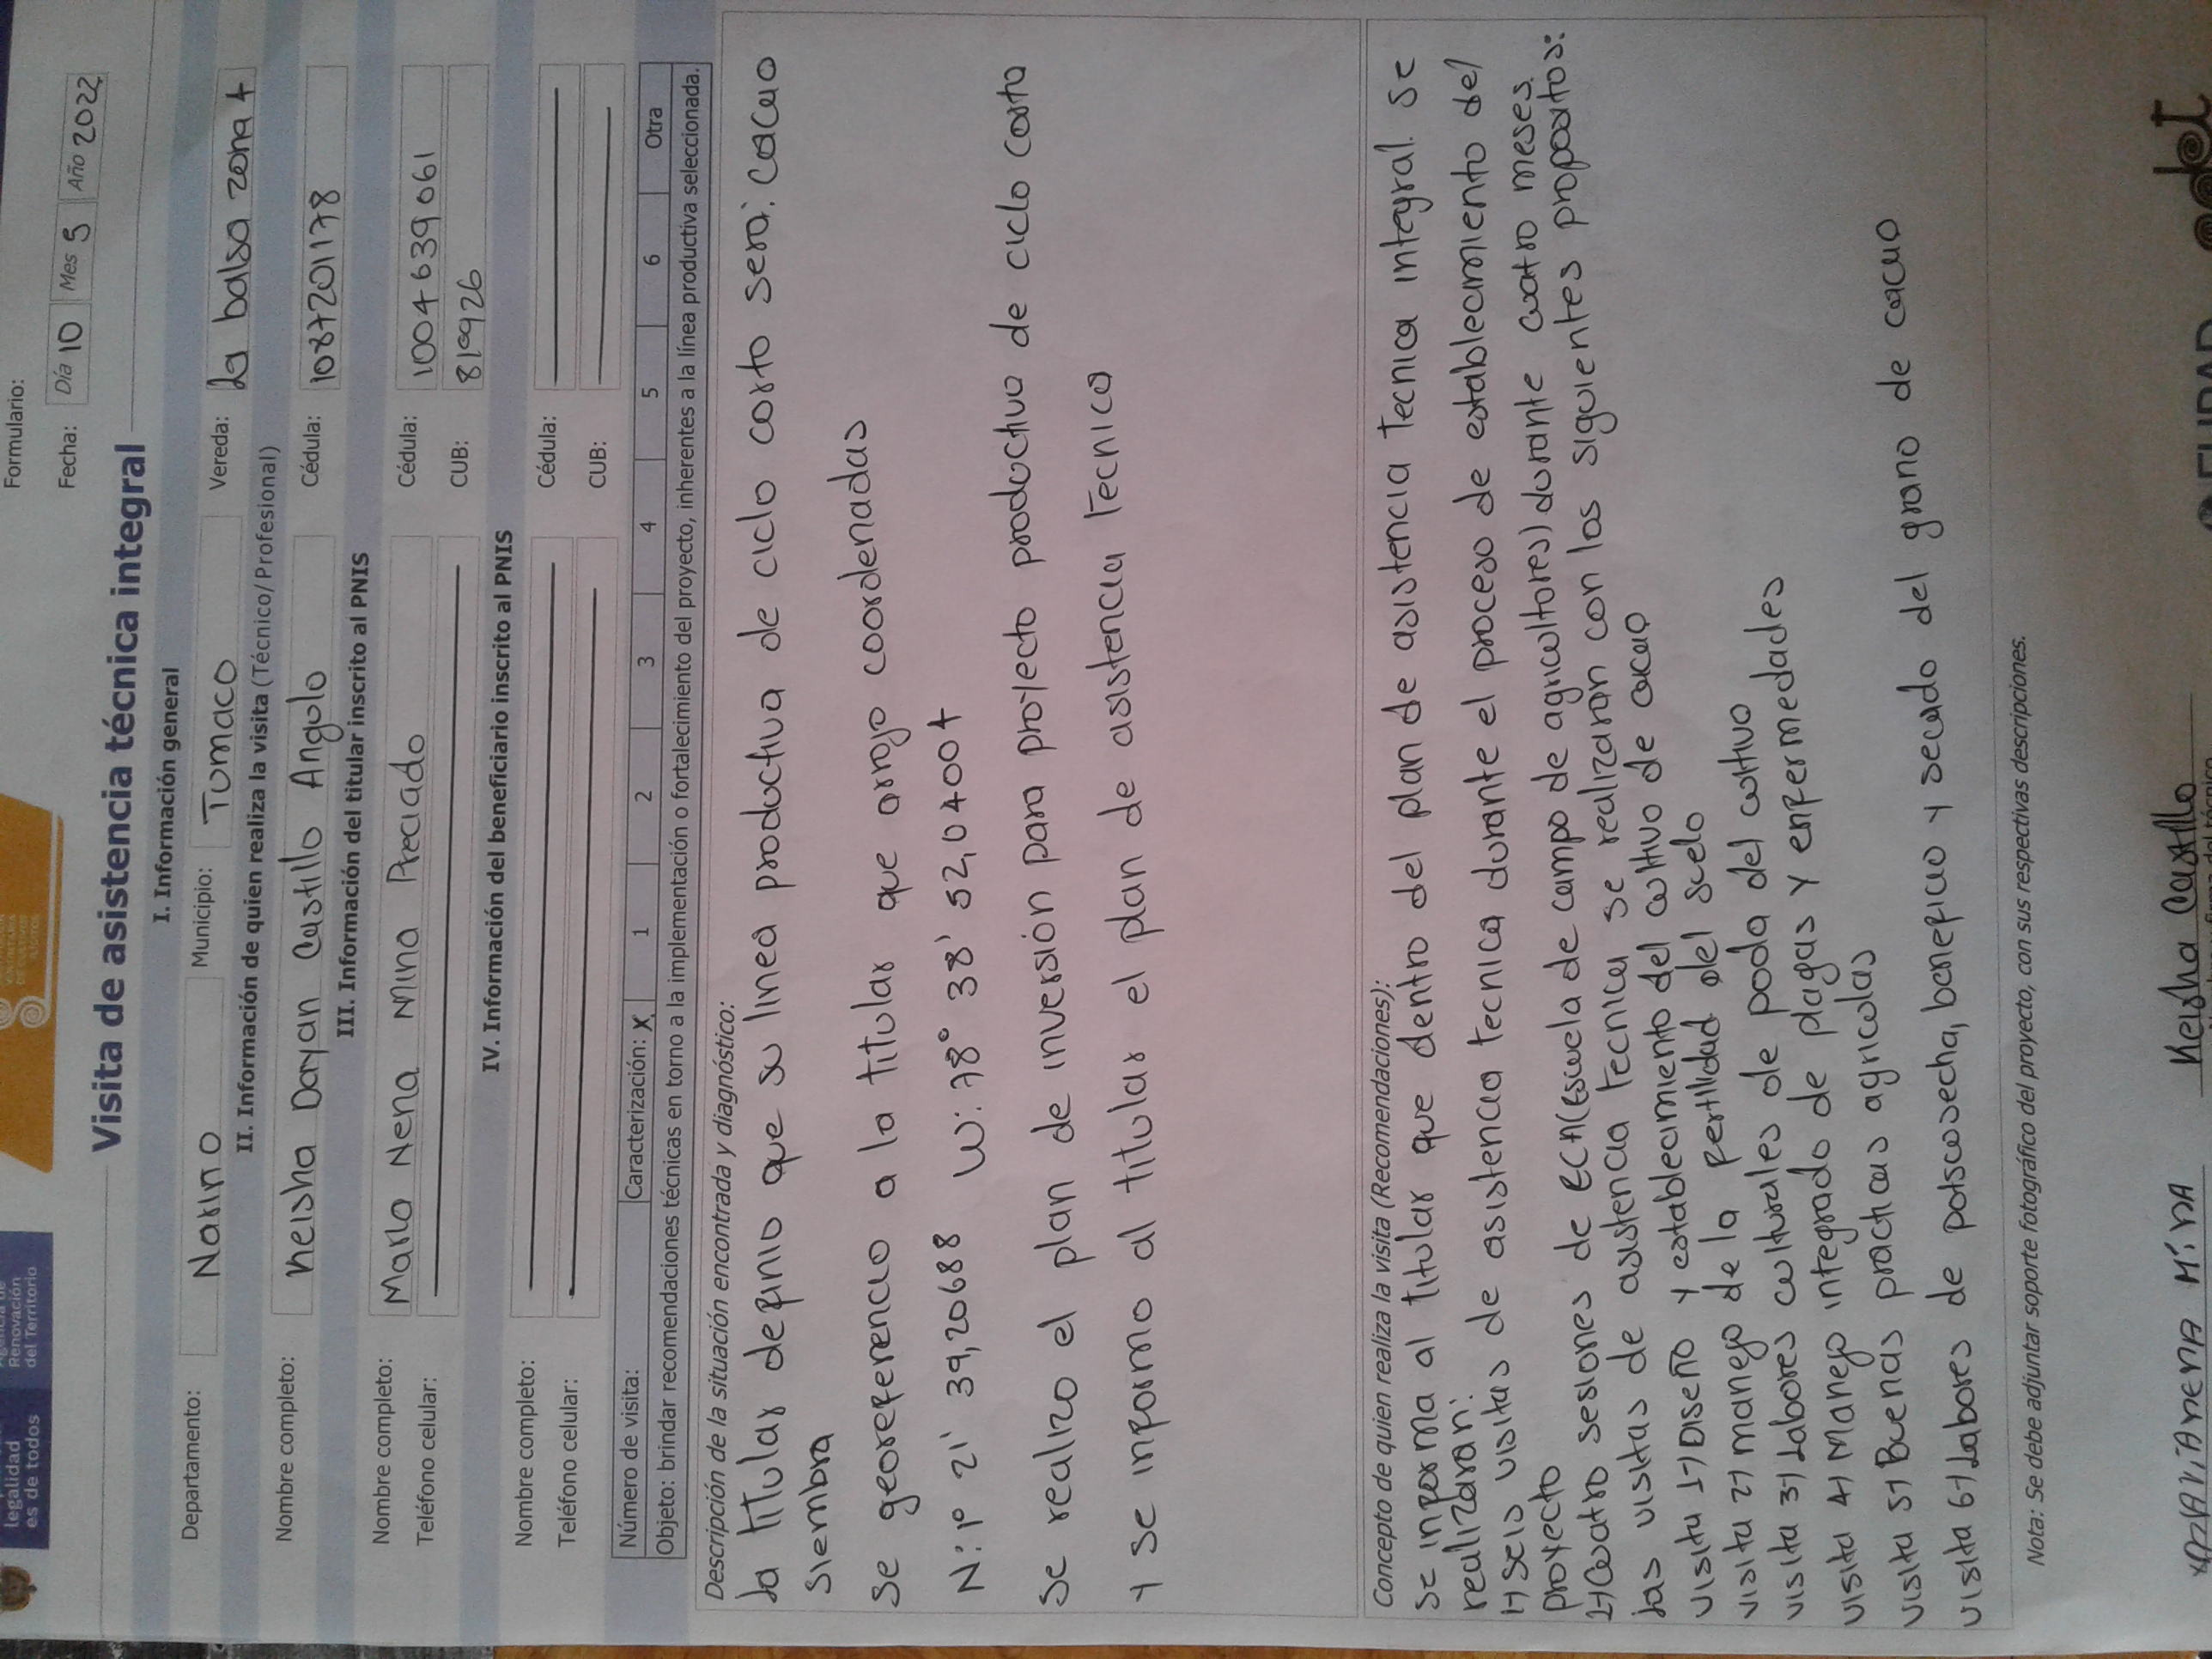 legalidad
es de todos
Renovación
del Territorio
Formulario:
Fecha: Día 10 Mes 5 Año 2022
Visita de asistencia técnica integral
I. Información general
Departamento: Nariño Municipio: Tumaco Vereda: La balsa zona 4
II. Información de quien realiza la visita (Técnico/Profesional)
Nombre completo: Keisha Dayan Castillo Angulo Cédula: 1087201178
III. Información del titular inscrito al PNIS
Nombre completo: Maria Nena Mina Preciado Cédula: 1004639061
Teléfono celular: CUB: 819926
IV. Información del beneficiario inscrito al PNIS
Nombre completo: Cédula:
Teléfono celular: CUB:
Número de visita: Caracterización: X 1 2 3 4 5 6 Otra
Objeto: brindar recomendaciones técnicas en torno a la implementación o fortalecimiento del proyecto, inherentes a la línea productiva seleccionada.
Descripción de la situación encontrada y diagnóstico:
La titular definio que su linea productiva de ciclo corto sera: cacao
siembra
se georeferencio a la titular que arrojo coordenadas
N: 1° 21' 39,20688 W: 78° 38' 52,04004
Se realizo el plan de inversión para proyecto productivo de ciclo corto
y se informo al titular el plan de asistencia tecnica
Concepto de quien realiza la visita (Recomendaciones):
se informa al titular que dentro del plan de asistencia tecnica integral. Se
realizaran:
1-) Seis visitas de asistencia tecnica durante el proceso de establecimiento del
proyecto
2-) Cuatro sesiones de ECA(Escuela de campo de agricultores) durante cuatro meses.
Las visitas de asistencia tecnica se realizaran con los siguientes propositos:
visita 1-) Diseño y establecimiento del cultivo de cacao
visita 2-) manejo de la fertilidad del suelo
visita 3-) Labores culturales de poda del cultivo
visita 4-) Manejo integrado de plagas y enfermedades
visita 5-) Buenas practicas agricolas
visita 6-) Labores de poscosecha, beneficio y secado del grano de cacao
Nota: Se debe adjuntar soporte fotográfico del proyecto, con sus respectivas descripciones.
MARIA NENA MINA Keisha Castillo